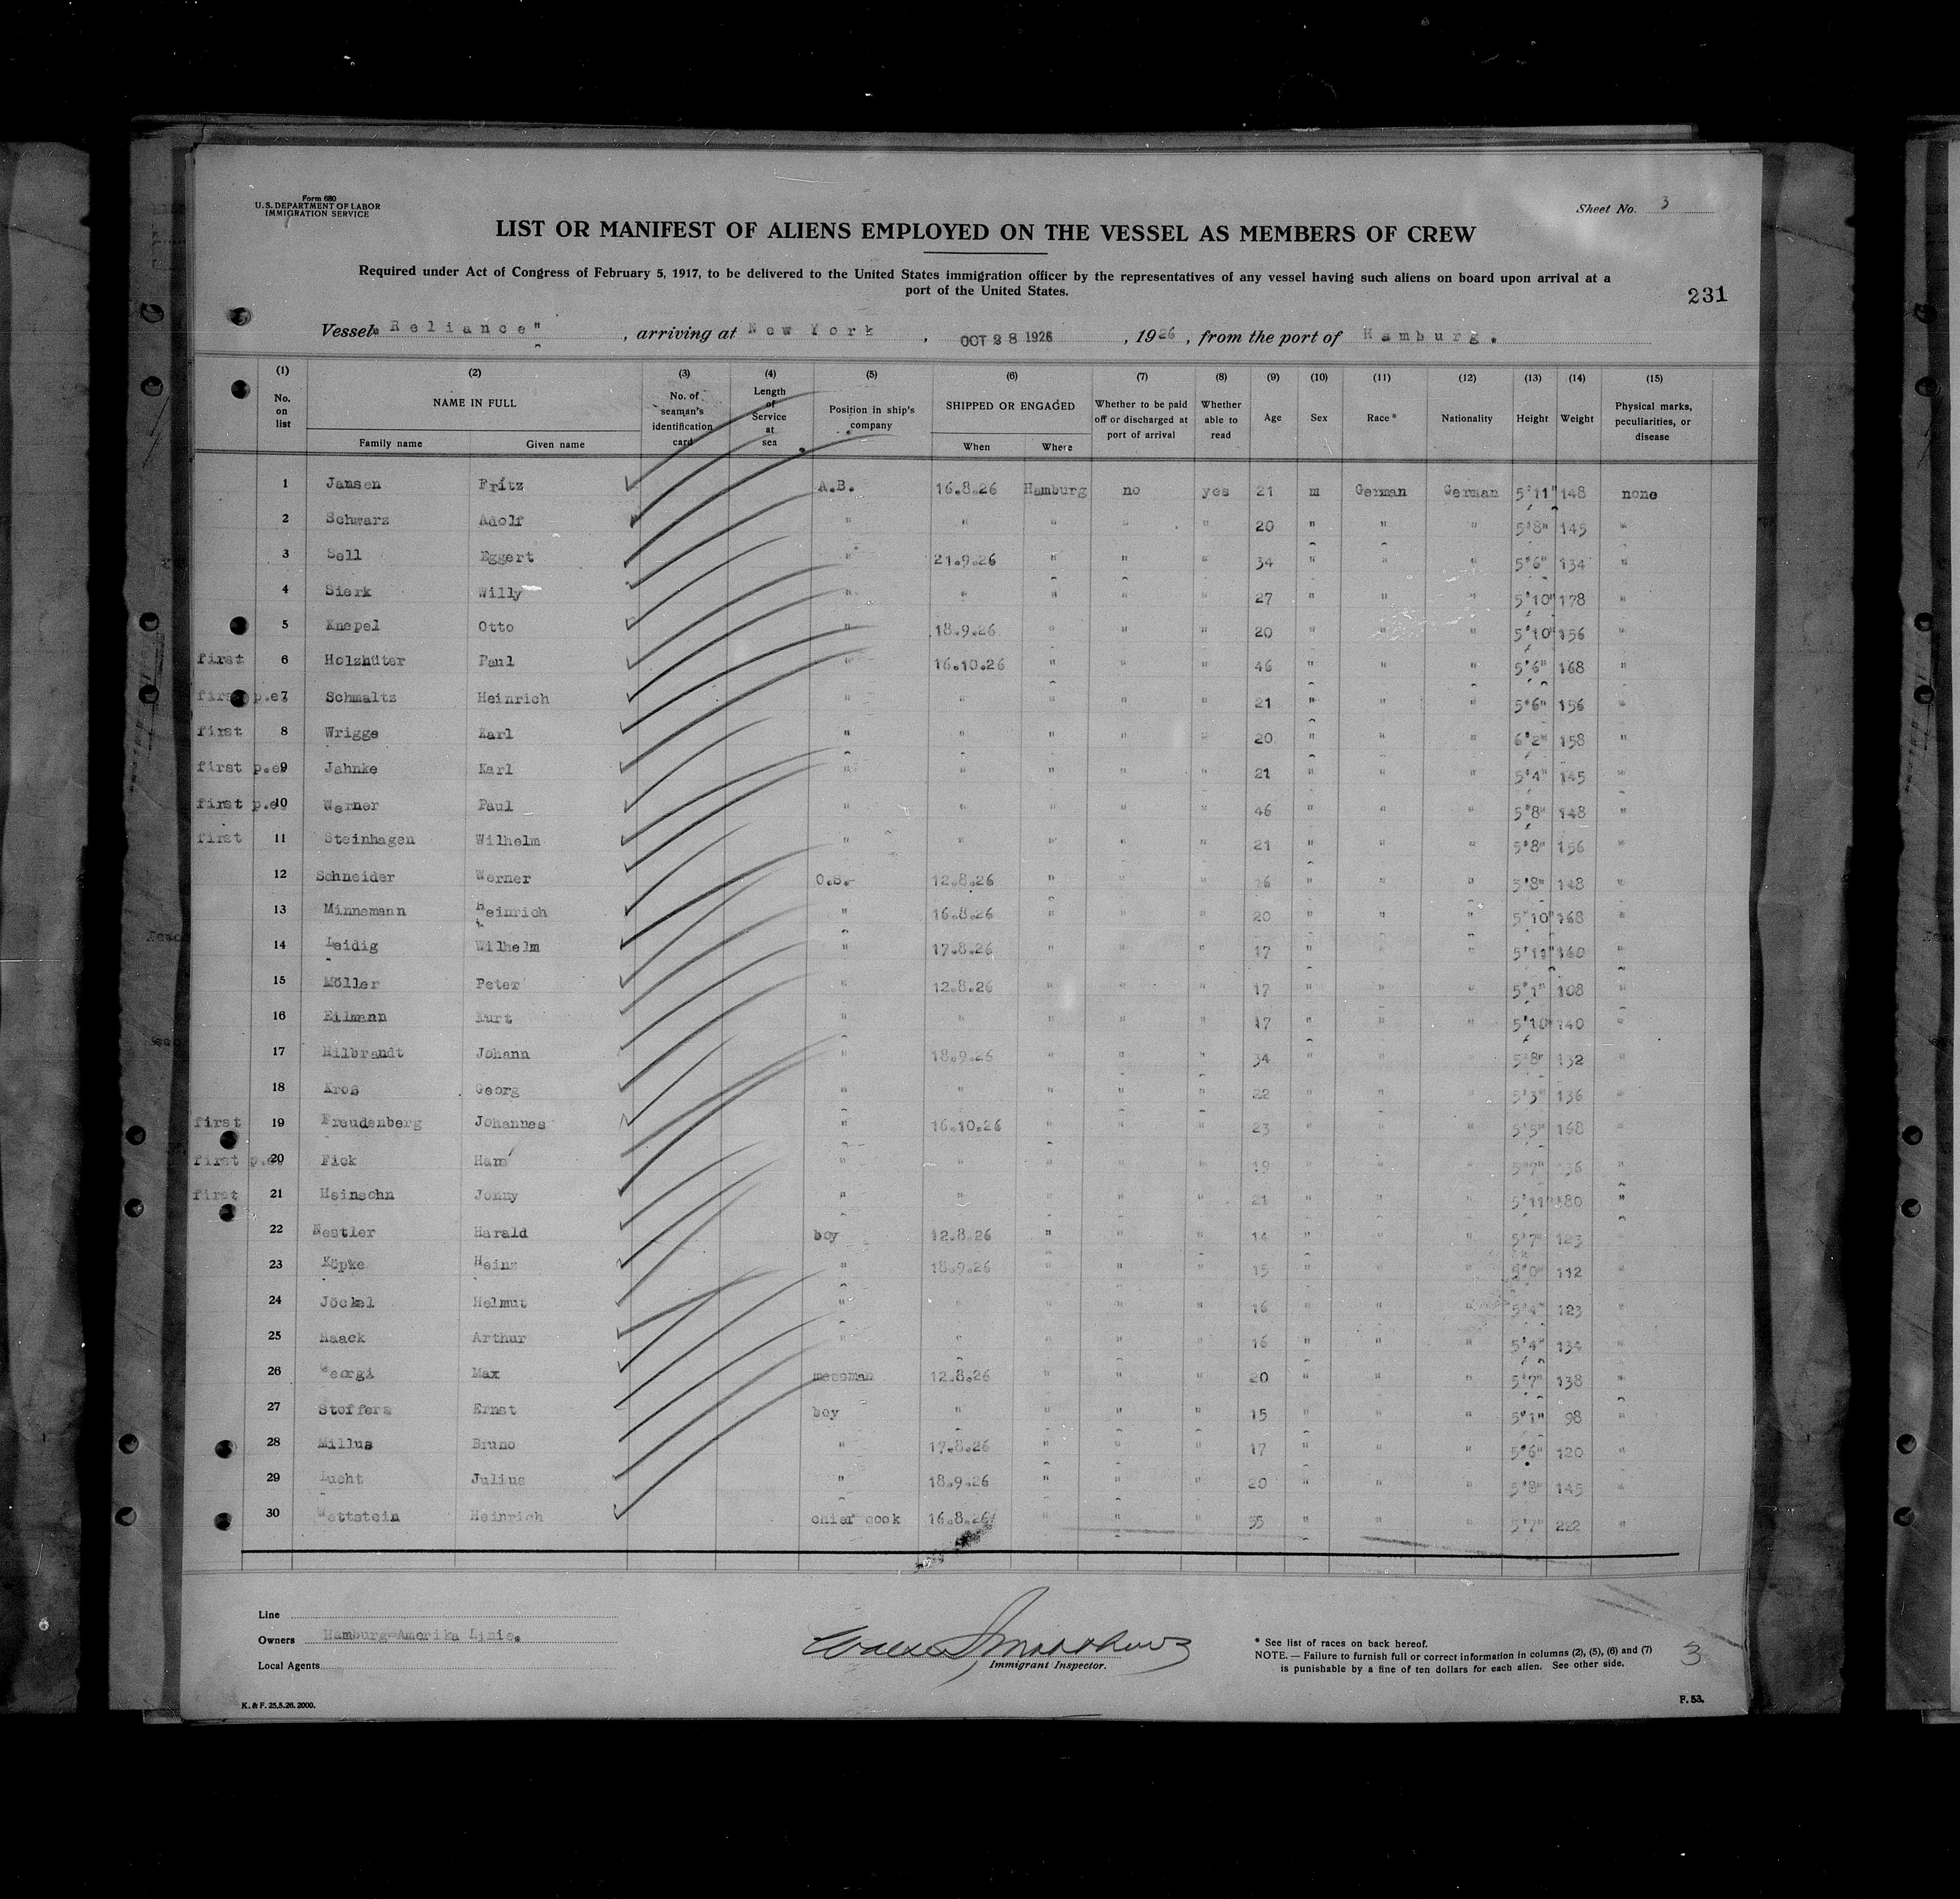 Form 680
U. S. DEPARTMENT OF LABOR
IMMIGRATION SERVICE
Sheet No. 3
LIST OR MANIFEST OF ALIENS EMPLOYED ON THE VESSEL AS MEMBERS OF CREW
Required under Act of Congress of February 5, 1917, to be delivered to the United States immigration officer by the representatives of any vessel having such aliens on board upon arrival at a
port of the United States.
231
Vessel "Reliance", arriving at New York, OCT 28 1926, 1926, from the port of Hamburg.
(1) (2) (3) (4) (5) (6) (7) (8) (9) (10) (11) (12) (13) (14) (15)
No. on list NAME IN FULL Family name Given name No. of seaman's identification card Length of Service at sea Position in ship's company SHIPPED OR ENGAGED When Where Whether to be paid off or discharged at port of arrival Whether able to read Age Sex Race* Nationality Height Weight Physical marks, peculiarities, or disease
1 Jansen Fritz A.B. 16.8.26 Hamburg no yes 21 m German German 5'11" 148 none
2 Schwarz Adolf " " " " " 20 " " " 5'8" 145 "
3 Sell Eggert " 21.9.26 " " " 34 " " " 5'6" 134 "
4 Sierk Willy " " " " " 27 " " " 5'10" 178 "
5 Knepel Otto " 18.9.26 " " " 20 " " " 5'10" 156 "
first 6 Holzhüter Paul " 16.10.26 " " " 46 " " " 5'6" 168 "
first p.e. 7 Schmaltz Heinrich " " " " " 21 " " " 5'6" 156 "
first 8 Wrigge Karl " " " " " 20 " " " 6'2" 158 "
first p.e. 9 Jahnke Karl " " " " " 21 " " " 5'4" 145 "
first p.e. 10 Werner Paul " " " " " 46 " " " 5'8" 148 "
first 11 Steinhagen Wilhelm " " " " " 21 " " " 5'8" 156 "
12 Schneider Werner O.S. 12.8.26 " " " 16 " " " 5'8" 148 "
13 Minnemann Heinrich " 16.8.26 " " " 20 " " " 5'10" 168 "
14 Leidig Wilhelm " 17.8.26 " " " 17 " " " 5'11" 160 "
15 Möller Peter " 12.8.26 " " " 17 " " " 5'1" 108 "
16 Eilmann Kurt " " " " " 17 " " " 5'10" 140 "
17 Hilbrandt Johann " 18.9.26 " " " 34 " " " 5'8" 132 "
18 Kroß Georg " " " " " 22 " " " 5'3" 136 "
first 19 Freudenberg Johannes " 16.10.26 " " " 23 " " " 5'5" 168 "
first p.e. 20 Fick Ham " " " " " 19 " " " 5'7" 136 "
first 21 Heinsohn Jonny " " " " " 21 " " " 5'11" 180 "
22 Nestler Harald boy 12.8.26 " " " 14 " " " 5'7" 123 "
23 Köpke Heinz " 18.9.26 " " " 15 " " " 5'0" 112 "
24 Jöckel Helmut " " " " " 16 " " " 5'4" 123 "
25 Haack Arthur " " " " " 16 " " " 5'4" 134 "
26 Georgi Max messman 12.8.26 " " " 20 " " " 5'7" 138 "
27 Stoffers Ernst boy " " " " 15 " " " 5'1" 98 "
28 Millus Bruno " 17.8.26 " " " 17 " " " 5'6" 120 "
29 Lucht Julius " 18.9.26 " " " 20 " " " 5'8" 145 "
30 Wettstein Heinrich chief cook 16.8.26 " " " 55 " " " 5'7" 222 "
Line
Owners Hamburg-Amerika Linie.
Local Agents
Immigrant Inspector.
* See list of races on back hereof.
NOTE. — Failure to furnish full or correct information in columns (2), (5), (6) and (7)
is punishable by a fine of ten dollars for each alien. See other side.
3
K. & F. 25.5.26. 2000.
F. 53.